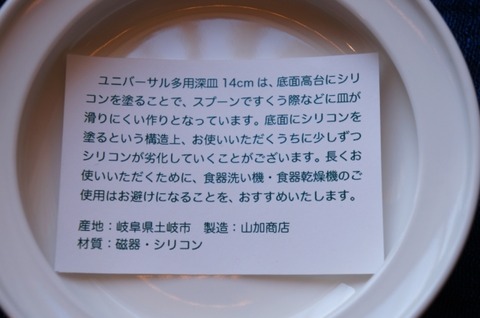 ユニバーサル多用深皿 14cm は、底面高台にシリ
コンを塗ることで、スプーンですくう際などに皿が
滑りにくい作りとなっています。底面にシリコンを
塗るという構造上、お使いいただくうちに少しずつ
シリコンが劣化していくことがございます。長くお
使いいただくために、食器洗い機・食器乾燥機のご
使用はお避けになることを、おすすめいたします。
産地：岐阜県土岐市　製造：山加商店
材質：磁器・シリコン